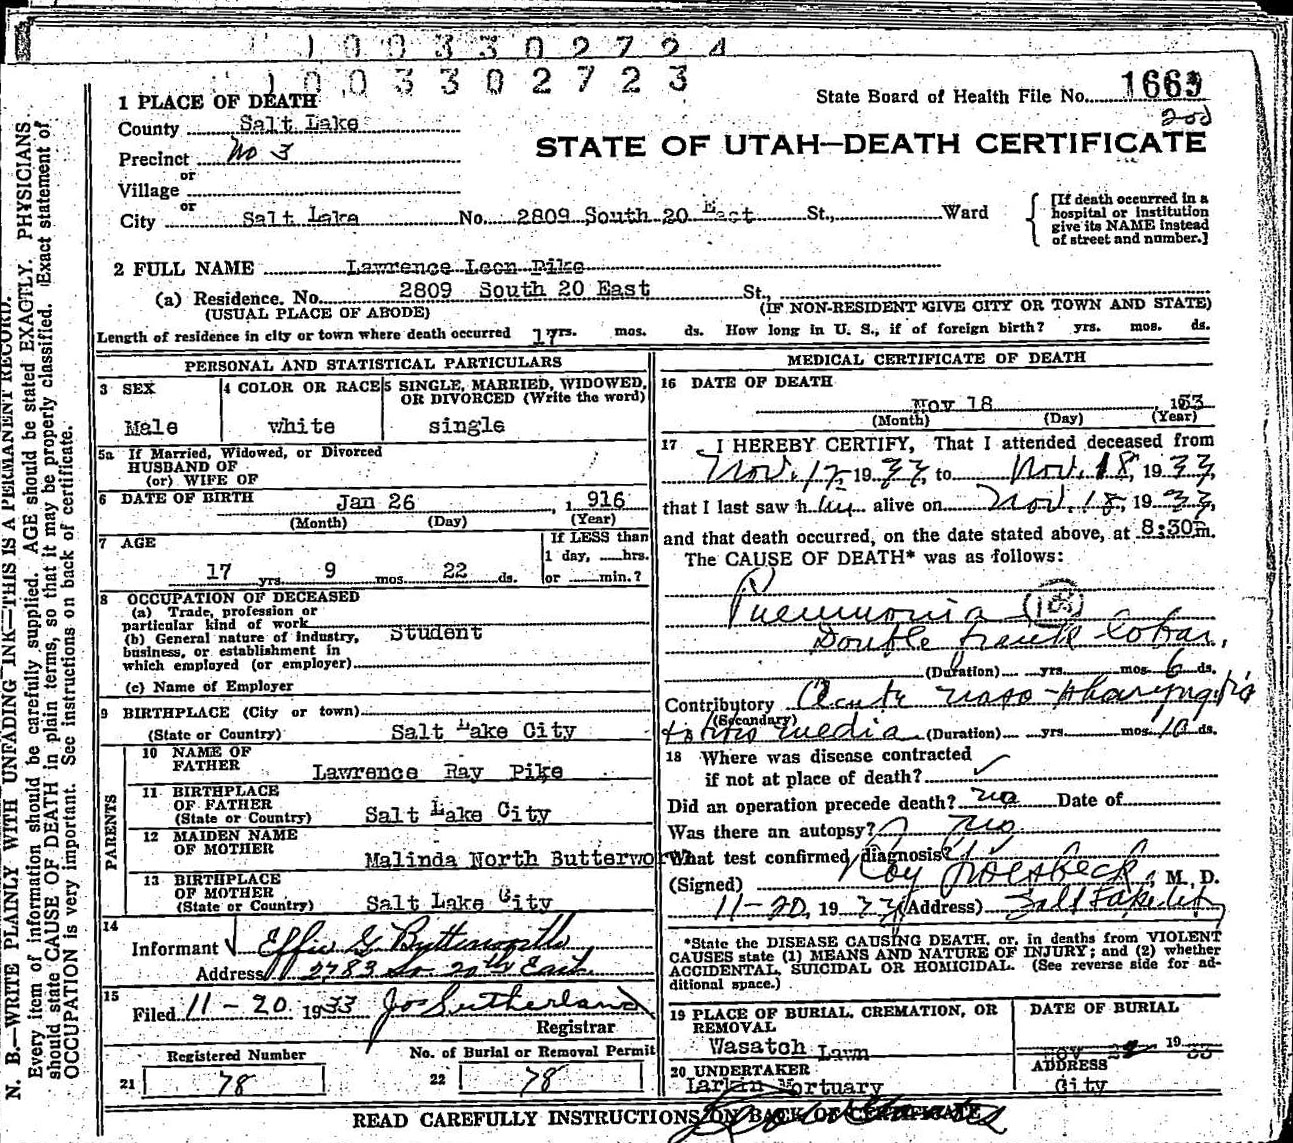 1 0 0 3 3 0 2 7 2 4
1 0 0 3 3 0 2 7 2 3
State Board of Health File No. 1663
STATE OF UTAH—DEATH CERTIFICATE
1 PLACE OF DEATH
County Salt Lake
Precinct No 3
or
Village
or
City Salt Lake No. 2809 South 20 East St., Ward
[If death occurred in a
hospital or institution
give its NAME instead
of street and number.]
2 FULL NAME Lawrence Leon Pike
(a) Residence. No. 2809 South 20 East St.,
(USUAL PLACE OF ABODE) (IF NON-RESIDENT GIVE CITY OR TOWN AND STATE)
Length of residence in city or town where death occurred 17 yrs. mos. ds. How long in U. S., if of foreign birth? yrs. mos. ds.
PERSONAL AND STATISTICAL PARTICULARS
3 SEX
Male
4 COLOR OR RACE
white
5 SINGLE, MARRIED, WIDOWED,
OR DIVORCED (Write the word)
single
5a If Married, Widowed, or Divorced
HUSBAND OF
(or) WIFE OF
6 DATE OF BIRTH Jan 26, 1916
(Month) (Day) (Year)
7 AGE
17 yrs. 9 mos. 22 ds.
If LESS than
1 day, hrs.
or min.?
8 OCCUPATION OF DECEASED
(a) Trade, profession or
particular kind of work Student
(b) General nature of industry,
business, or establishment in
which employed (or employer)
(c) Name of Employer
9 BIRTHPLACE (City or town)
(State or Country) Salt Lake City
PARENTS
10 NAME OF
FATHER
Lawrence Ray Pike
11 BIRTHPLACE
OF FATHER
(State or Country) Salt Lake City
12 MAIDEN NAME
OF MOTHER
Malinda North Butterworth
13 BIRTHPLACE
OF MOTHER
(State or Country) Salt Lake City
14
Informant Effie G Butterworth
Address 2783 So. 20th East
15
Filed 11-20 1933 Jos Sutherland
Registrar
21 Registered Number
78
22 No. of Burial or Removal Permit
78
MEDICAL CERTIFICATE OF DEATH
16 DATE OF DEATH
Nov 18, 1933
(Month) (Day) (Year)
17 I HEREBY CERTIFY, That I attended deceased from
Nov. 17, 1933, to Nov. 18, 1933,
that I last saw him alive on Nov. 18, 1933,
and that death occurred, on the date stated above, at 8:30 m.
The CAUSE OF DEATH* was as follows:
Pneumonia (108)
Double frank lobar,
(Duration) yrs. mos. 6 ds.
Contributory Acute naso-pharyngitis
(Secondary)
+ otitis media (Duration) yrs. mos. 10 ds.
18 Where was disease contracted
if not at place of death?
Did an operation precede death? no Date of
Was there an autopsy? no
What test confirmed diagnosis?
(Signed) Roy Groesbeck, M. D.
11-20, 1933 (Address) Salt Lake City
*State the DISEASE CAUSING DEATH, or, in deaths from VIOLENT
CAUSES state (1) MEANS AND NATURE OF INJURY; and (2) whether
ACCIDENTAL, SUICIDAL OR HOMICIDAL. (See reverse side for ad-
ditional space.)
19 PLACE OF BURIAL, CREMATION, OR
REMOVAL
Wasatch Lawn
DATE OF BURIAL
19 33
20 UNDERTAKER
Larkin Mortuary
ADDRESS
City
READ CAREFULLY INSTRUCTIONS ON BACK OF CERTIFICATE
N. B.—WRITE PLAINLY WITH UNFADING INK—THIS IS A PERMANENT RECORD.
Every item of information should be carefully supplied. AGE should be stated EXACTLY. PHYSICIANS
should state CAUSE OF DEATH in plain terms, so that it may be properly classified. Exact statement of
OCCUPATION is very important. See instructions on back of certificate.